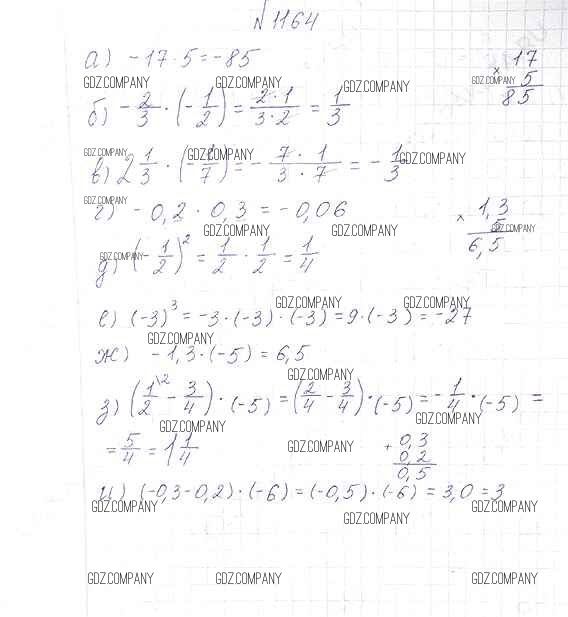 №1164
а) -17 · 5 = -85
17
× 5
85
GDZ.COMPANY GDZ.COMPANY GDZ.COMPANY GDZ.COMPANY
б) -2/3 · (-1/2) = 2·1/3·2 = 1/3
GDZ.COMPANY GDZ.COMPANY GDZ.COMPANY
в) 2 1/3 · (-1/7) = -7·1/3·7 = -1/3
GDZ.COMPANY
г) -0,2 · 0,3 = -0,06
1,3
× 5
6,5
GDZ.COMPANY GDZ.COMPANY GDZ.COMPANY
GDZ.COMPANY
д) (-1/2)² = 1/2 · 1/2 = 1/4
GDZ.COMPANY GDZ.COMPANY
е) (-3)³ = -3·(-3)·(-3) = 9·(-3) = -27
GDZ.COMPANY
ж) -1,3·(-5) = 6,5
GDZ.COMPANY
з) (1\2/2 - 3/4)·(-5) = (2/4 - 3/4)·(-5) = -1/4·(-5) =
GDZ.COMPANY GDZ.COMPANY
= 5/4 = 1 1/4
GDZ.COMPANY
0,3
+ 0,2
0,5
и) (-0,3-0,2)·(-6) = (-0,5)·(-6) = 3,0 = 3
GDZ.COMPANY GDZ.COMPANY GDZ.COMPANY
GDZ.COMPANY GDZ.COMPANY GDZ.COMPANY